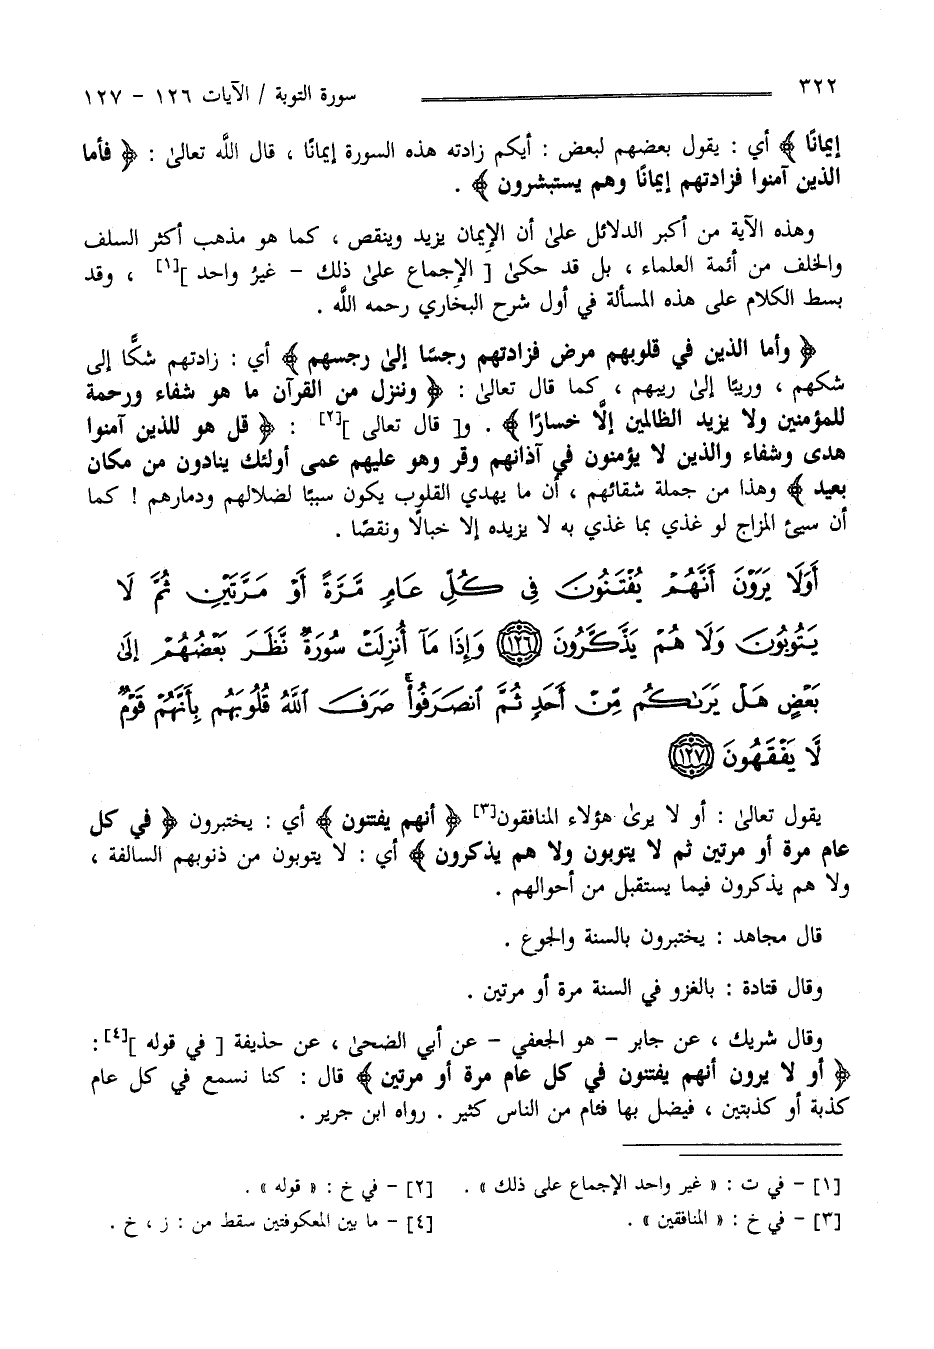 ٣٢٢ سورة التوبة / الآيات ١٢٦ - ١٢٧
إيمانًا ﴾ أي : يقول بعضهم لبعض : أيكم زادته هذه السورة إيمانًا ، قال اللَّه تعالىٰ : ﴿ فأما
الذين آمنوا فزادتهم إيمانًا وهم يستبشرون ﴾ .
وهذه الآية من أكبر الدلائل علىٰ أن الإيمان يزيد وينقص ، كما هو مذهب أكثر السلف
والخلف من أئمة العلماء ، بل قد حكىٰ [ الإجماع علىٰ ذلك - غيرُ واحد ][١] ، وقد
بسط الكلام على هذه المسألة في أول شرح البخاري رحمه اللَّه .
﴿ وأما الذين في قلوبهم مرض فزادتهم رجسًا إلىٰ رجسهم ﴾ أي : زادتهم شكًّا إلى
شكهم ، وريبًا إلىٰ ريبهم ، كما قال تعالىٰ : ﴿ وننزل من القرآن ما هو شفاء ورحمة
للمؤمنين ولا يزيد الظالمين إلَّا خسارًا ﴾ . و[ قال تعالى ][٢] : ﴿ قل هو للذين آمنوا
هدى وشفاء والذين لا يؤمنون في آذانهم وقر وهو عليهم عمى أولئك ينادون من مكان
بعيد ﴾ وهذا من جملة شقائهم ، أن ما يهدي القلوب يكون سببًا لضلالهم ودمارهم ! كما
أن سيئ المزاج لو غذي بما غذي به لا يزيده إلا خبالًا ونقصًا .
أَوَلَا يَرَوْنَ أَنَّهُمْ يُفْتَنُونَ فِي كُلِّ عَامٍ مَّرَّةً أَوْ مَرَّتَيْنِ ثُمَّ لَا
يَتُوبُونَ وَلَا هُمْ يَذَّكَّرُونَ ﴿١٢٦﴾ وَإِذَا مَآ أُنزِلَتْ سُورَةٌ نَّظَرَ بَعْضُهُمْ إِلَىٰ
بَعْضٍ هَلْ يَرَىٰكُم مِّنْ أَحَدٍ ثُمَّ ٱنصَرَفُوا۟ۚ صَرَفَ ٱللَّهُ قُلُوبَهُم بِأَنَّهُمْ قَوْمٌ
لَّا يَفْقَهُونَ ﴿١٢٧﴾
يقول تعالىٰ : أو لا يرىٰ هؤلاء المنافقون[٣] ﴿ أنهم يفتنون ﴾ أي : يختبرون ﴿ في كل
عام مرة أو مرتين ثم لا يتوبون ولا هم يذكرون ﴾ أي : لا يتوبون من ذنوبهم السالفة ،
ولا هم يذكرون فيما يستقبل من أحوالهم .
قال مجاهد : يختبرون بالسنة والجوع .
وقال قتادة : بالغزو في السنة مرة أو مرتين .
وقال شريك ، عن جابر - هو الجعفي - عن أبي الضحىٰ ، عن حذيفة [ في قوله ][٤] :
﴿ أو لا يرون أنهم يفتنون في كل عام مرة أو مرتين ﴾ قال : كنا نسمع في كل عام
كذبة أو كذبتين ، فيضل بها فئام من الناس كثير . رواه ابن جرير .
[١] - في ت : « غير واحد الإجماع على ذلك » . [٢] - في خ : « قوله » .
[٣] - في خ : « المنافقين » . [٤] - ما بين المعكوفتين سقط من : ز ، خ .